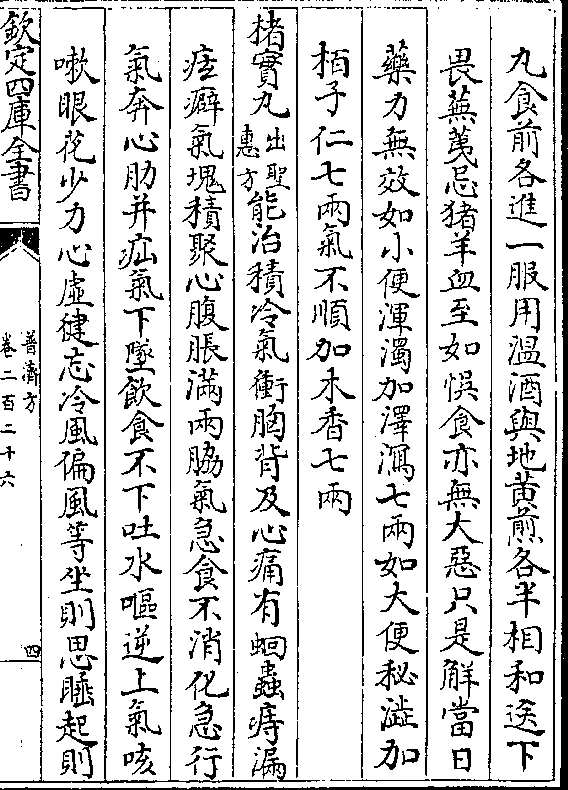 丸食前各進一服用温酒與地黄煎各半相和送下
畏蕪荑忌猪羊血至如悮食亦無大惡只是解當日
藥力無效如小便渾濁加澤瀉七兩如大便秘澁加
栢子仁七兩氣不順加木香七兩
楮實丸出聖惠方能治積冷氣衝胸背及心痛有蛔蟲痔漏
痃癖氣塊積聚心腹脹滿兩脇氣急食不消化急行
氣奔心肋并疝氣下墜飲食不下吐水嘔逆上氣咳
嗽眼花少力心虛健忘冷風偏風等坐則思睡起則
欽定四庫全書
普濟方
卷二百二十六
四